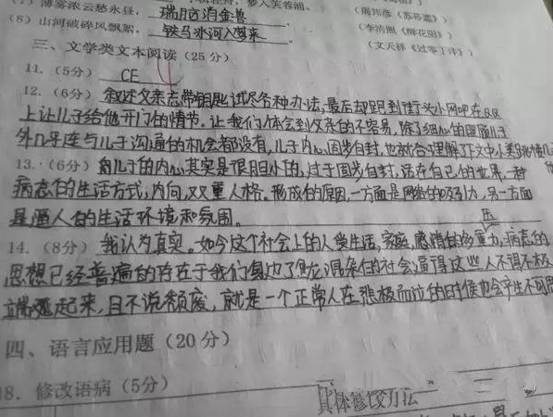 (7)薄雾浓云愁永昼，瑞脑消金兽
(李清照《醉花阴》)
(8) 山河破碎风飘絮，铁马冰河入梦来。
(文天祥《过零丁洋》)
三、文学类文本阅读（25 分）
11.（5分） CE
12.（6分） 叙述父亲忘带钥匙试尽各种办法,最后却跑到街头小网吧在QQ
上让儿子给他开门的情节。让我们体会到父亲的不容易,除了细心的照顾儿子
外几乎连与儿子沟通的机会都没有,儿子内心固步自封,也就合理解了下文中小
13.（6分） 的儿子的内心其实是很胆小的,过于固步自封,活在自己的世界,一种
病态的生活方式,内向,双重人格。形成的原因,一方面是网络的吸引力,另一方面
是逼人的生活环境和氛围。
压
14.（8分） 我认为真实。如今这个社会上的人受生活,家庭,感情的多重力,病态的
思想已经普遍的存在于我们身边了,混杂的社会逼得这些人不得不极
端起来,且不说颓废,就是一个正常人在悲极而泣的时候也会产生不同
四、语言应用题（20 分）
18. 修改语病（5分）
具体修改方法